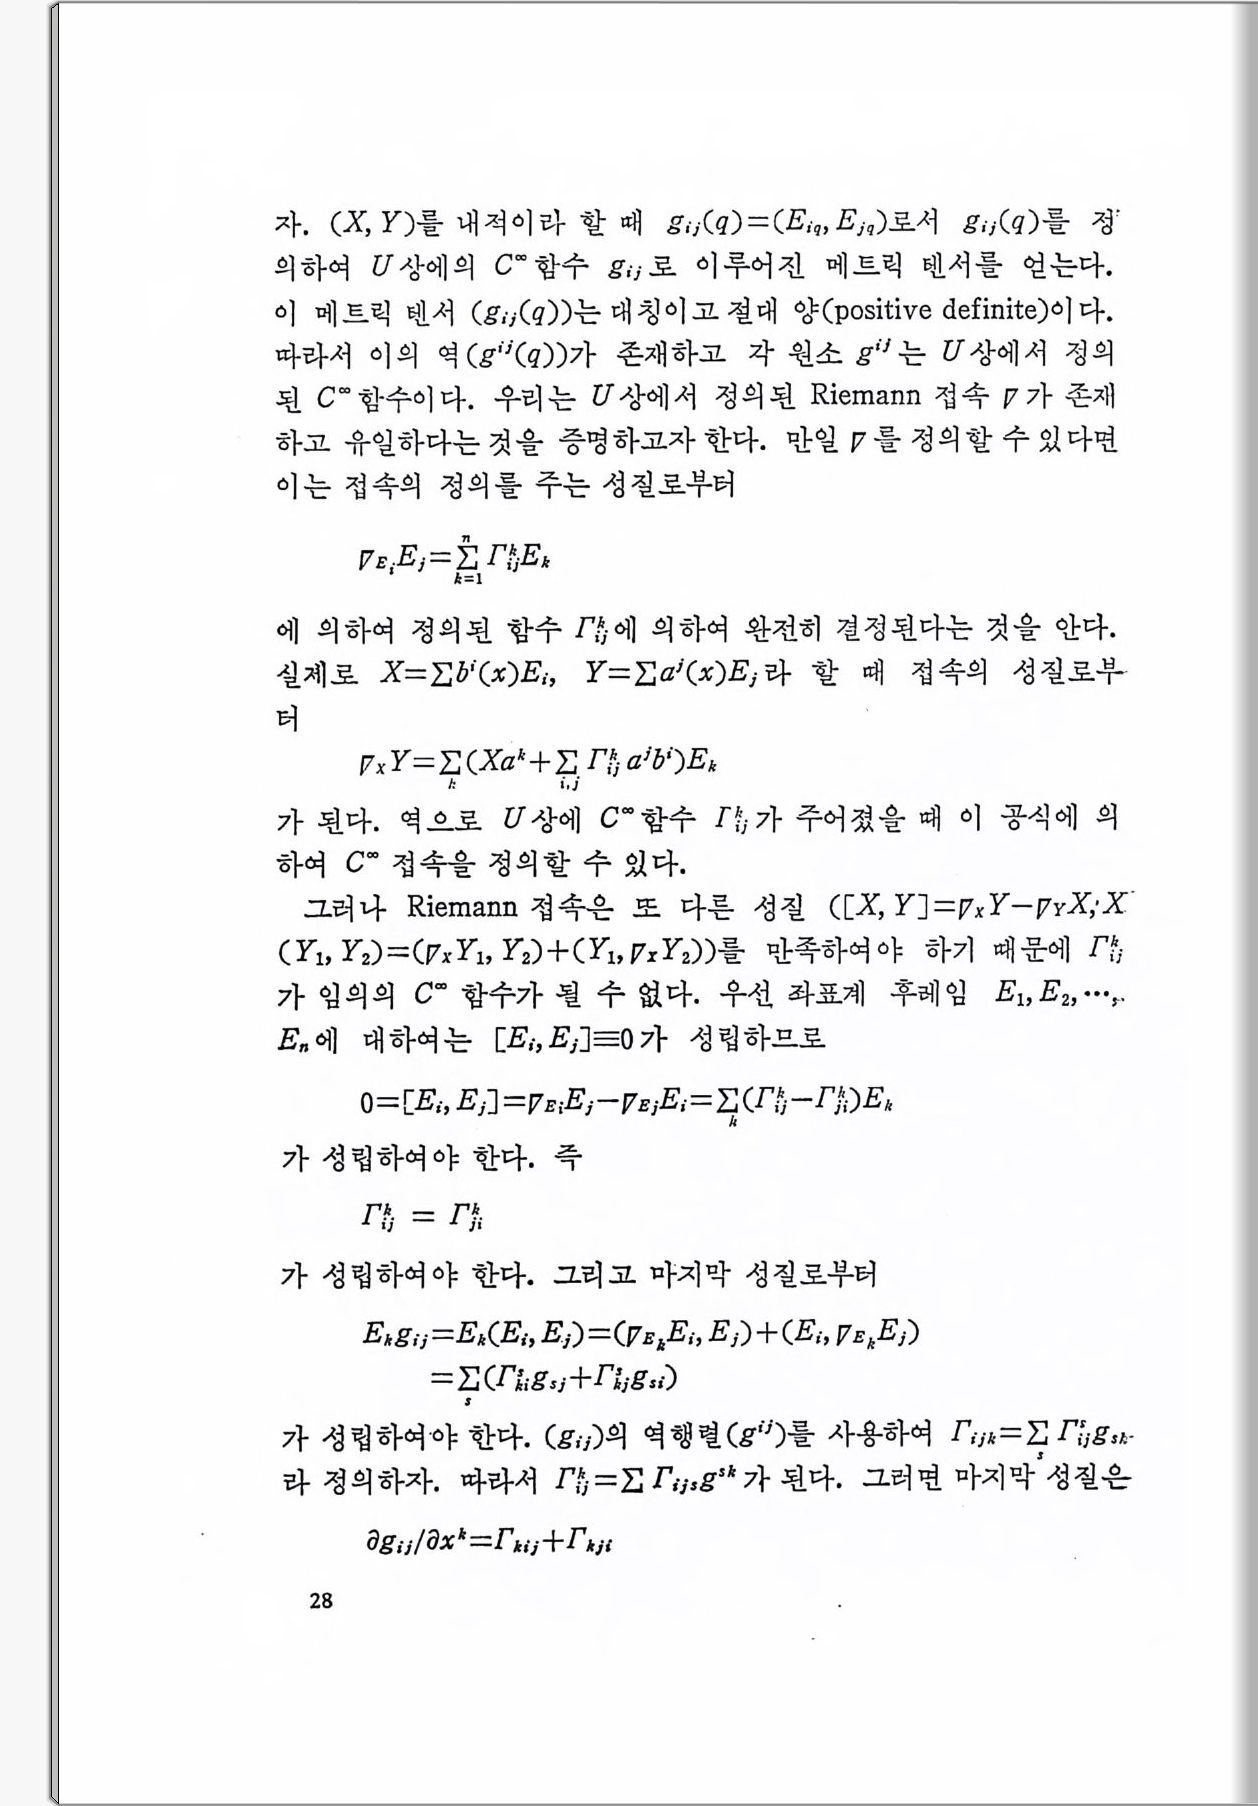 자. (X, Y)를 내적이라 할 때 gᵢⱼ(q)=(Eᵢq, Eⱼq)로서 gᵢⱼ(q)를 정
의하여 U상에의 C∞함수 gᵢⱼ로 이루어진 메트릭 텐서를 얻는다.
이 메트릭 텐서 (gᵢⱼ(q))는 대칭이고 절대 양(positive definite)이다.
따라서 이의 역(gⁱʲ(q))가 존재하고 각 원소 gⁱʲ는 U상에서 정의
된 C∞함수이다. 우리는 U상에서 정의된 Riemann 접속 ∇가 존재
하고 유일하다는 것을 증명하고자 한다. 만일 ∇를 정의할 수 있다면
이는 접속의 정의를 주는 성질로부터
∇_{E_i}E_j=∑_{k=1}^{n} Γ_{ij}^{k}E_k
에 의하여 정의된 함수 Γ_{ij}^{k}에 의하여 완전히 결정된다는 것을 안다.
실제로 X=∑bⁱ(x)Eᵢ, Y=∑aʲ(x)Eⱼ라 할 때 접속의 성질로부
터
∇_X Y=∑_{k}(Xa^k+∑_{i,j} Γ_{ij}^{k} a^j b^i)E_k
가 된다. 역으로 U상에 C∞함수 Γ_{ij}^{k}가 주어졌을 때 이 공식에 의
하여 C∞ 접속을 정의할 수 있다.
그러나 Riemann 접속은 또 다른 성질 ([X, Y]=∇_X Y−∇_Y X, X
(Y₁, Y₂)=(∇_X Y₁, Y₂)+(Y₁, ∇_X Y₂))를 만족하여야 하기 때문에 Γ_{ij}^{k}
가 임의의 C∞ 함수가 될 수 없다. 우선 좌표계 후레임 E₁, E₂, …,
Eₙ에 대하여는 [Eᵢ, Eⱼ]≡0가 성립하므로
0=[E_i, E_j]=∇_{E_i}E_j−∇_{E_j}E_i=∑_{k}(Γ_{ij}^{k}−Γ_{ji}^{k})E_k
가 성립하여야 한다. 즉
Γ_{ij}^{k} = Γ_{ji}^{k}
가 성립하여야 한다. 그리고 마지막 성질로부터
E_k g_{ij}=E_k(E_i, E_j)=(∇_{E_k}E_i, E_j)+(E_i, ∇_{E_k}E_j)
=∑_{s}(Γ_{ki}^{s}g_{sj}+Γ_{kj}^{s}g_{si})
가 성립하여야 한다. (gᵢⱼ)의 역행렬(gⁱʲ)를 사용하여 Γ_{ijk}=∑_{s} Γ_{ij}^{s}g_{sk}
라 정의하자. 따라서 Γ_{ij}^{k}=∑ Γ_{ijs}g^{sk}가 된다. 그러면 마지막 성질은
∂g_{ij}/∂x^k=Γ_{kij}+Γ_{kji}
28